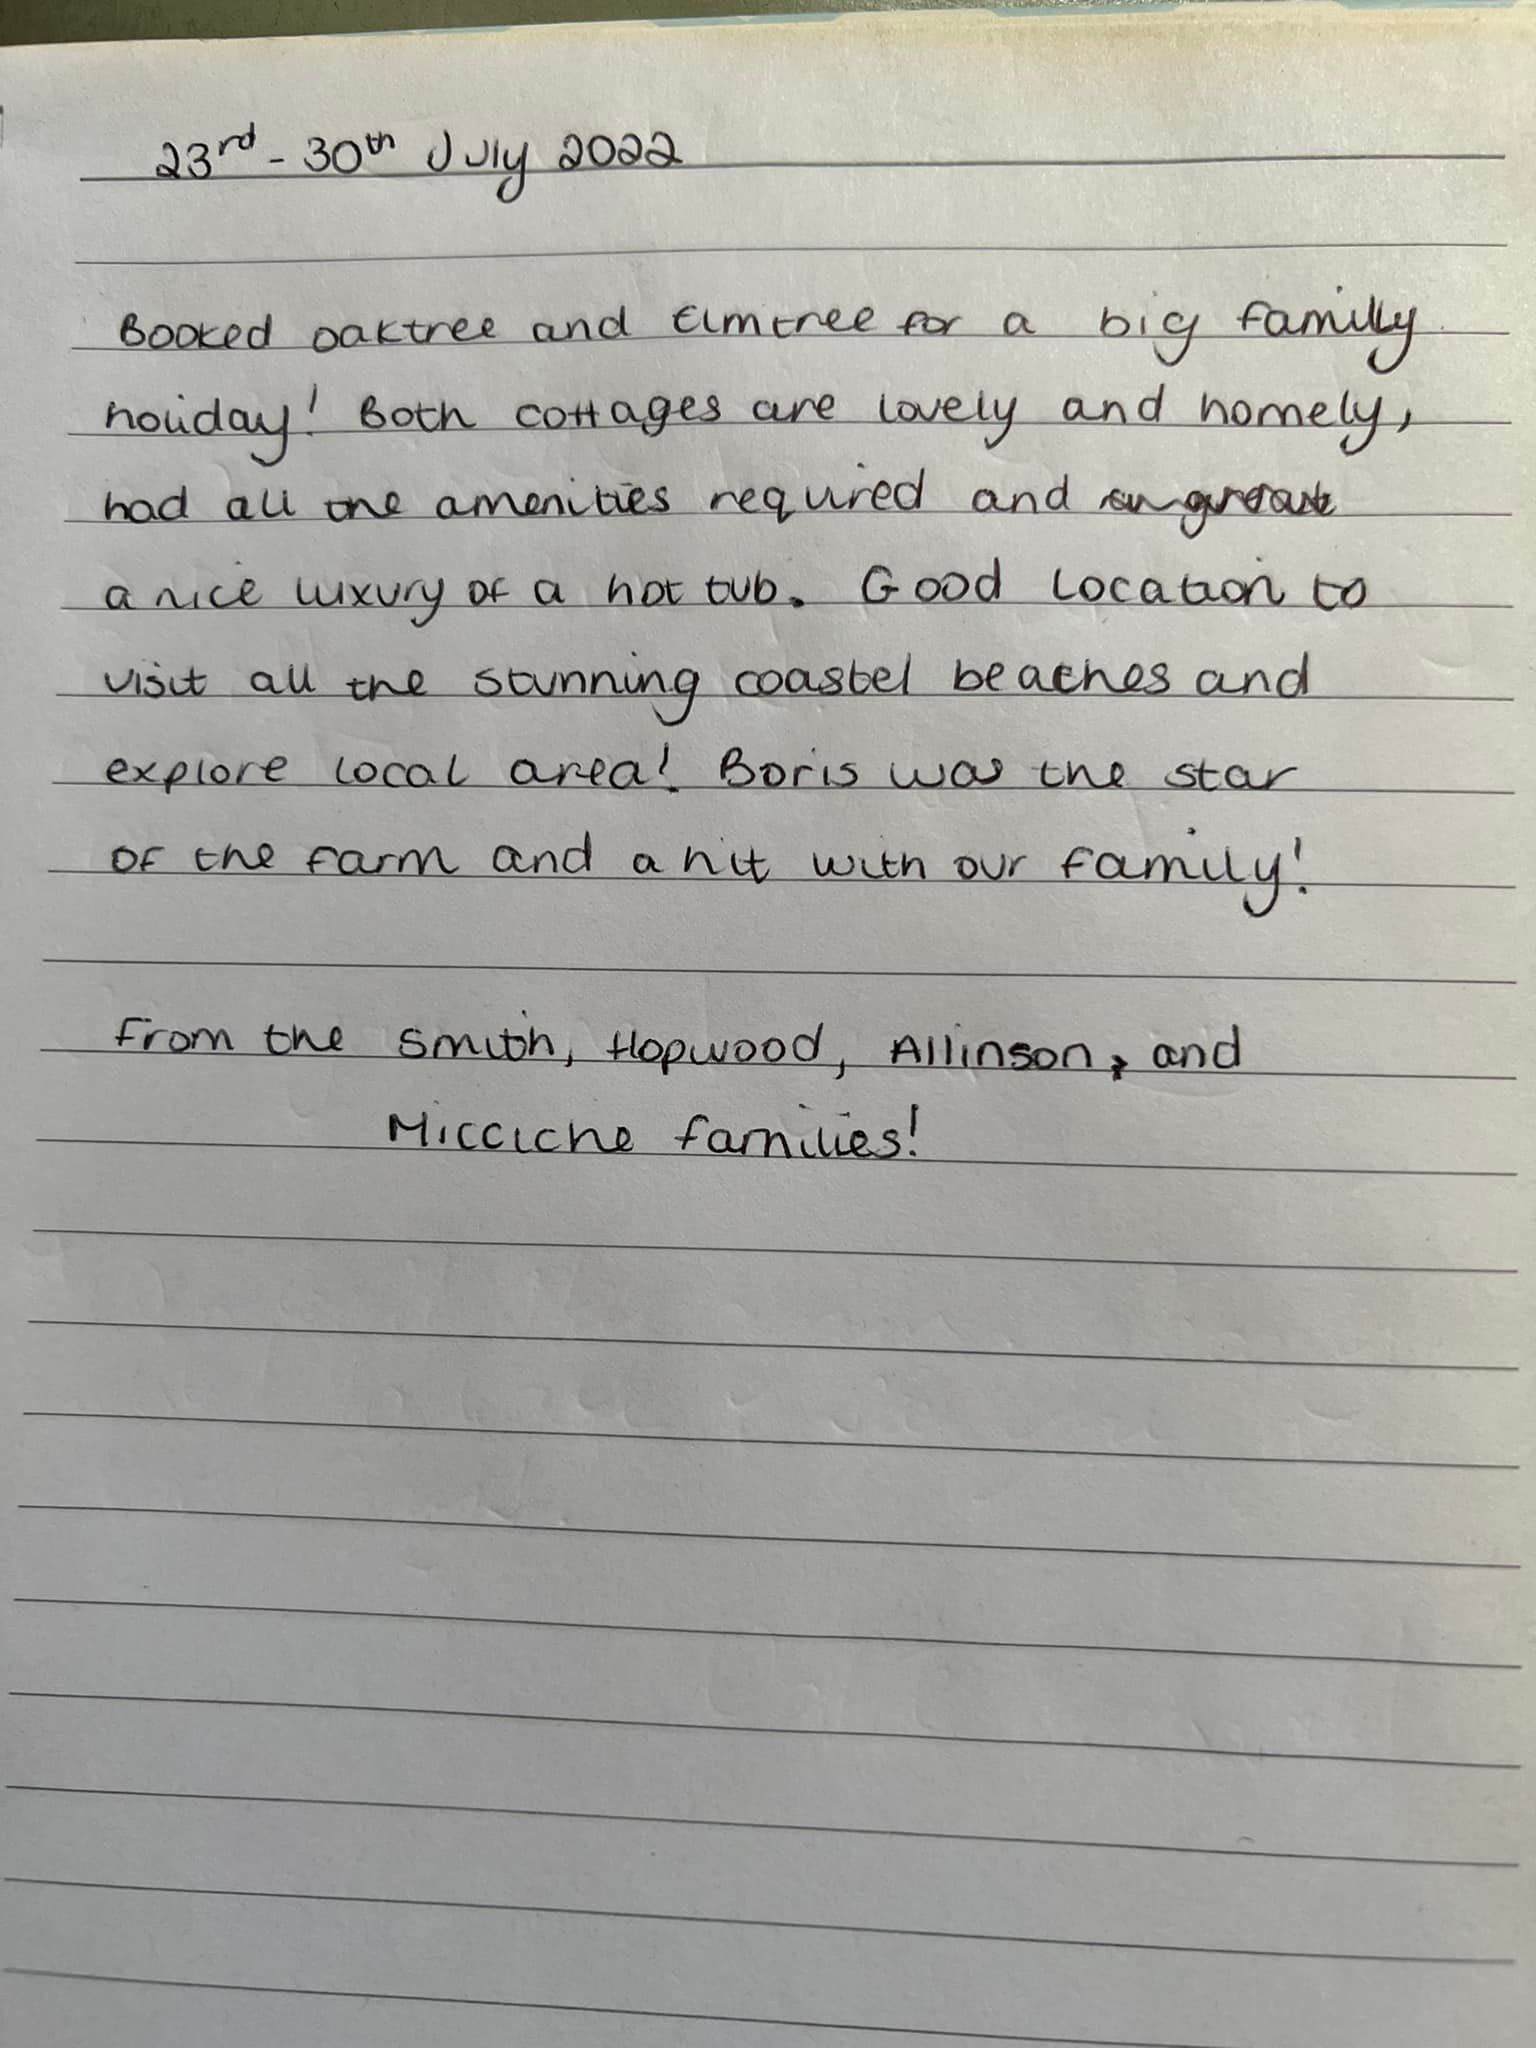 23rd - 30th July 2022
Booked oaktree and Elmtree for a big family
holiday! Both cottages are lovely and homely,
had all the amenities required and
a nice luxury of a hot tub. Good location to
visit all the stunning coastel beaches and
explore local area! Boris was the star
of the farm and a hit with our family!
From the Smith, Hopwood, Allinson, and
Micciche families!